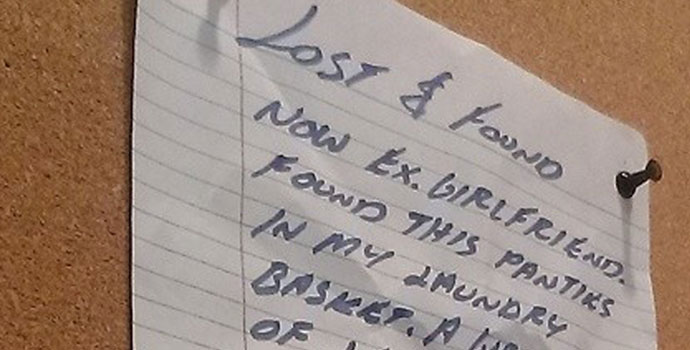 LOST & FOUND
NOW EX. GIRLFRIEND.
FOUND THIS PANTIES
IN MY LAUNDRY
BASKET. A
OF